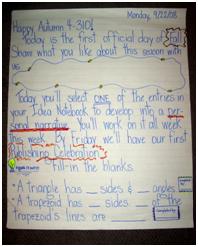 Monday, 9/22/08
Happy Autumn 4-310!
Today is the first official day of Fall.
Share what you like about this season with
us
Today you'll select ONE of the entries in
your Idea Notebook to develop into a per-
sonal narrative. You'll work on it all week
this week. By Friday we'll have our first
Publishing Celebration.
Fill-in the blanks.
• A triangle has __ sides & __ angles
• A trapezoid has __ sides. __ of the
trapezoid's lines are __